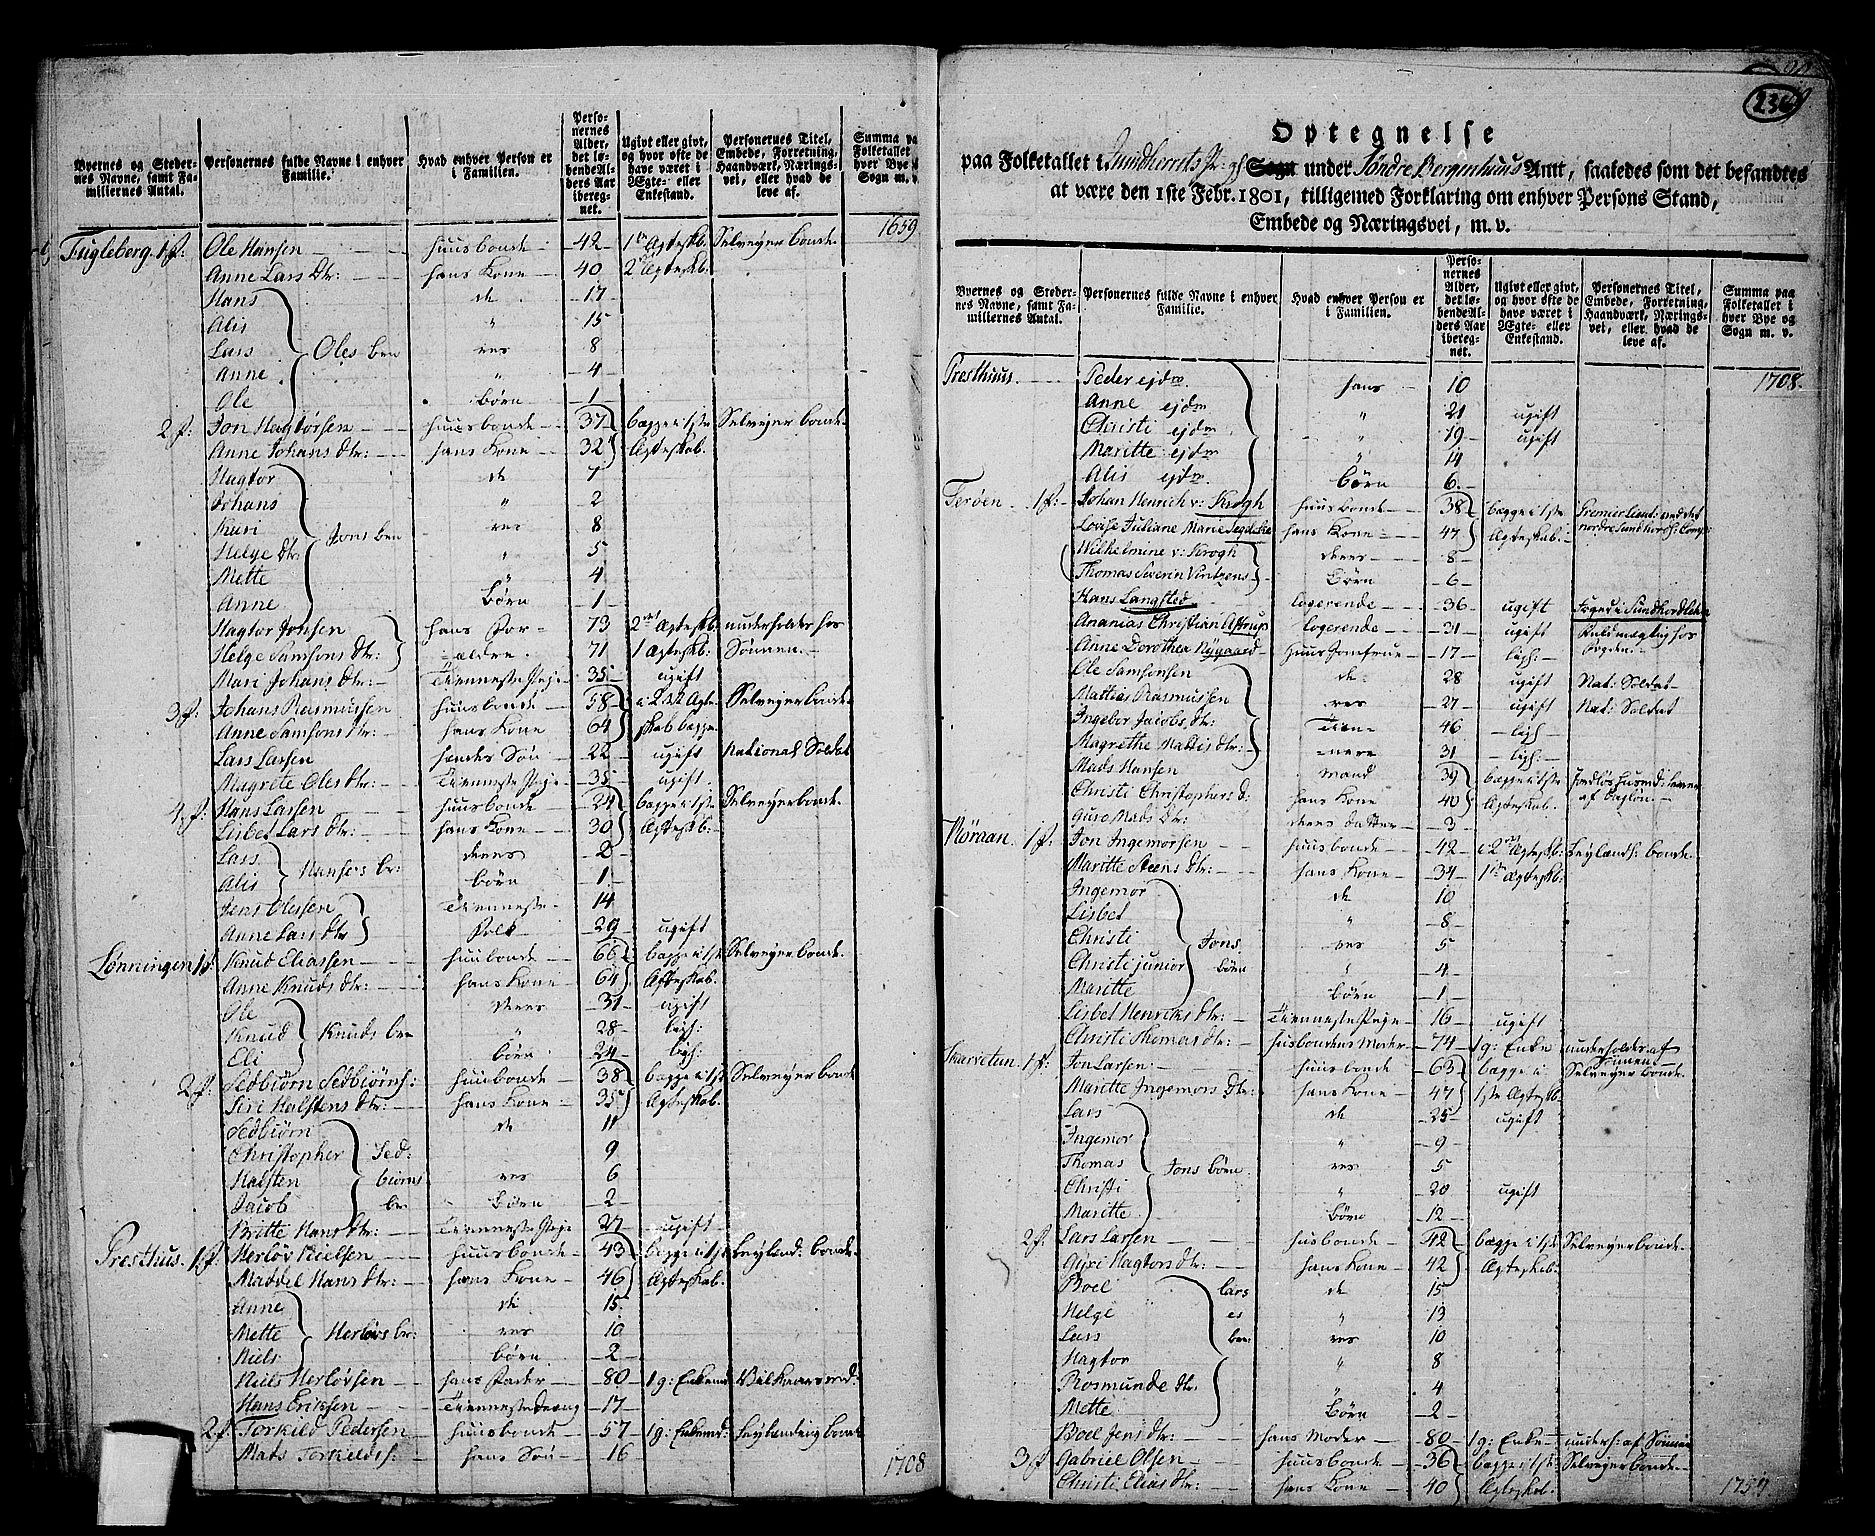 Byernes og Steder-
nes Navne, samt Fa-
miliernes Antal.
Personernes fulde Navne i enhver
Familie.
Hvad enhver Person er
i Familien.
Perso-
nernes
Alder,
det lø-
bende Al-
ders Aar
ibereg-
net.
Ugivt eller givt,
og hvor ofte de
have været i
Ægte- eller
Enkestand.
Personernes Titel,
Embede, Forretning,
Haandværk, Nærings-
vei, eller hvad de
leve af.
Summa pa
Folketallet
hver Bye
Sogn m. v.
1659
Fugleberg. 1 f: Ole Hansen huusbonde 42 1te Ægteskb. Selveyer bonde
Anne Lars Dtr: hans Kone 40 2det Ægteskb:
Hans de 17
Alis " 15
Lars Oles ben res 8
Anne " 4
Ole börn 1
2 f: Jon Hagtorsen huusbonde 37 begge i 1ste Selveyer bonde
Anne Johans dtr: hans Kone 32 Ægteskab.
Hagtor de 7
Johans " 2
Kari Jons ben res 8
Helge dtr: " 5
Mette " 4
Anne börn 1
Hagtor Jonsen hans For- 73 2det Ægteskb: underholdes hos
Helge Samsons dtr: =ældre. 71 1 Ægteskb: Sönnen.
Mari Johans dtr: Tienneste Pige 35 ugift
3 f: Johans Rasmussen huusbonde 58 i 2det Ægte- Selveyer bonde
Anne Samsons dtr: hans Kone 64 skab begge
Lars Larsen hendes Sön 22 ugift National Soldat
Magrete Oles dtr: Tienneste Pige 35 ugift
4 f: Hans Larsen huusbonde 24 begge i 1ste Selveyer bonde.
Lisbet Lars dtr: hans Kone 30 Ægteskab.
Lars Hanses be: deres 2
Alis börn 1
Jens Olessen Tienneste 14
Anne Lars dtr Folk 29 ugift
Lønningen 1 f: Knud Eliassen huusbonde 66 begge i 1ste Selveyer bonde.
Anne Knuds dtr: hans Kone 64 Ægteskab.
Ole deres 31 ugift
Knud Knuds be " 28 ligh:
Eli börn 24 ligh:
2 f: Sedbiörn Sedbiörns: huusbonde 38 begge i 1ste Selveyer bonde
Siri Halstens dtr: hans Kone 35 Ægteskab.
Sedbiörn de 11
Christopher Sed: 9
Halsten biörns res 6
Jacob be: Börn 2
Britte Hans dtr: Tienneste Pige 27 ugift
Presthuus. 1 f: Herlöv Nielsen huusbonde 43 begge i 1ste Leylend: bonde
Maddel Hans dtr: hans Kone 46 Ægteskab.
Anne de 15
Mette Herlövs be: res 10
Niels börn 2
Niels Herlövsen hans Fader 80 1 g: Enkemd: Vilkaarsmd:
Hans Eriksen Tienneste dreng 17
2 f: Torkild Pedersen huusbonde 57 1 g: Enkemd: Leylending bonde
Mats Torkilds: hans Sön 16
1708
Optegnelse
paa Folketallet i Sundherrets Pr: gl Sogn under Søndre Bergenhuus Amt, saaledes som det befandtes
at være den 1ste Febr. 1801, tilligemed Forklaring om enhver Persons Stand,
Embede og Næringsvei, m. v.
Byernes og Steder-
nes Navne, samt Fa-
miliernes Antal.
Personernes fulde Navne i enhver
Familie.
Hvad enhver Person er
i Familien.
Perso-
nernes
Alder,
det lø-
bende Al-
ders Aar
ibereg-
net.
Ugivt eller givt,
og hvor ofte de
have været i
Ægte- eller
Enkestand.
Personernes Titel,
Embede, Forretning,
Haandværk, Nærings-
vei, eller hvad de
leve af.
Summa paa
Folketallet i
hver Bye og
Sogn m. v.
Presthuus. Peder ejdm hans 10 1708.
Anne ejdm " 21 ugift
Christi ejdm " 19 ugift
Maritte ejdm " 14
Alis ejdm Börn 6.
Terøen. 1 f: Johan Henrich v: Krogh huusbonde 38 begge i 1ste Premier Lieut: ved det
Lovise Juliane Marie hans Kone 47 Ægteskab. nordre Sundhordl: Comp:
Wilhelmine v: Krogh deres 8
Thomas Severin Börn 6
Hans Langsted logerende 36 ugift Foged i Sundhordlehn
Ananias Christian Astrup logerende 31 ugift Fuldmegtig hos
Anne Dorothea Nygaard Huus Jomfrue 17 ligh: Fogden.
Ole Samsonsen de 28 ugift Nat: Soldat
Mathias Rasmussen res 27 ugift Nat: Soldat
Ingebor Jacobs dtr: Tien= 46 ligh
Magrethe Mattis dtr: =nere 31 ligh:
Mads Hansen mand 39 begge i 1ste Jordløs huusmd: lever
Christi Christophers d: hans Kone 40 Ægteskab. af dagløn.
Guro Mads Dtr: deres datter 3
Nøraan. 1 f: Jon Ingemorsen huusbonde 42 i 2det Ægteskb: Leylænds: bonde
Maritte Steens dtr: hans Kone 34 1te Ægteskb:
Ingemor de 10
Lisbet " 8
Christi Jons res 5
Christi junior börn " 4
Maritte börn 1
Lisbet Henriks dtr: Tienneste Pige 16 ugift
Christi Thomas dtr: husbondens Moder 74 1 g: Enke underholdes af
Sönnen
1 f: Jon Larsen huusbonde 63 begge i Selveyer bonde.
Maritte Ingemors dtr: hans Kone 47 1ste Ægteskb.
Lars de 25 ugift
Ingemor " 9
Thomas Jons Börn res 5
Christi " 20 ugift
Maritte Börn 12
2 f. Lars Larsen husbonde 42 begge i 1ste Selveyer bonde
Gyri Hagtors dtr: hans Kone 42 Ægteskab:
Boel Lars de 15
Helge es " 13
Lars ben: res 10
Hagtor " 8
Rosmunde dtr: " 4
Mette Börn 2
Boel Jens dtr: hans Moder 80 1 g: Enke unders: af Sönnen
3 f Gabriel Olsen huusbonde 36 begge i 1ste Selveyer bonde
Christi Elias dtr: hans Kone 40 Ægteskab.